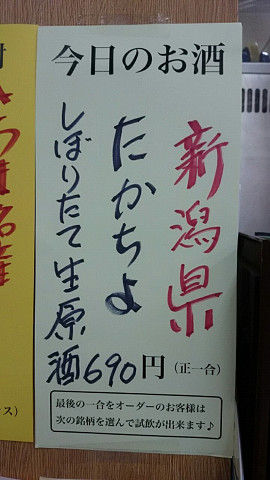 今日のお酒
新潟県
たかちよ
しぼりたて生原酒690円(正一合)
最後の一合をオーダーのお客様は
次の銘柄を選んで試飲が出来ます♪